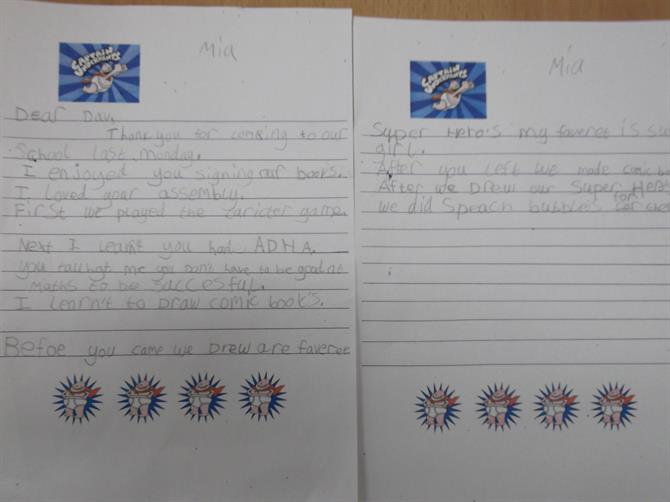 CAPTAIN
UNDERPANTS
Mia
Dear Dav,
Thank you for comeing to our
School last Monday.
I enjoyed you signing our book's.
I loved your assembly.
First we played the caricter game.
Next I learnt you had ADHA.
you taught me you don't have to be good at
Maths to be succesful.
I learn't to Draw comic book's.
Befoe you came we Drew are faveret
CAPTAIN
UNDERPANTS
Mia
Super Hero's my faveret is
girl.
After you left we made comic
After we Drew our Super
we did Speach bubbles for